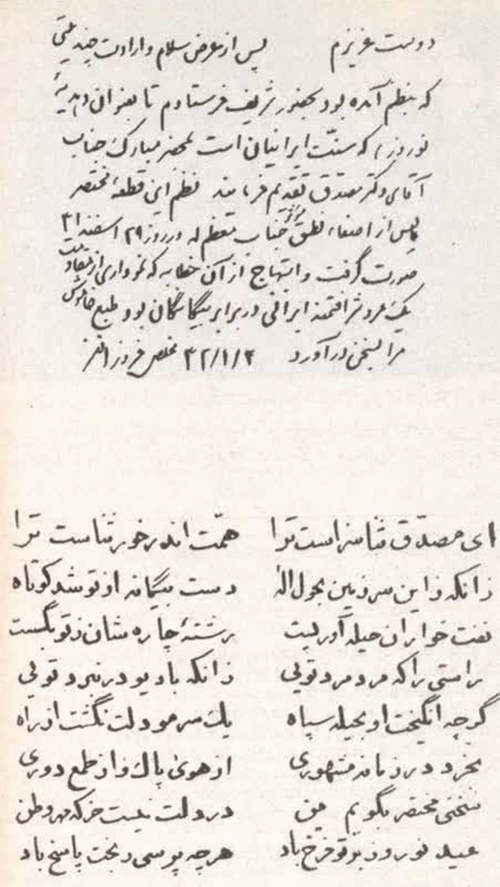 دوست عزیزم پس از عرض سلام و ارادت چند بیتی
که بنظم آمده بود بحضور شریف فرستادم تا بعنوان هدیهٔ
نوروز، که سنّت ایرانیان است بمحضر مبارک جناب
آقای دکتر مصدّق تقدیم فرمایند نظم این قطعهٔ مختصر
پس از اصغاء نطق جناب معظم له در روز ۲۹ اسفند ۳۱
صورت گرفت و ابتهاج از آن خطابه که نموداری از
یک مرد شرافتمند ایرانی در برابر بیگانگان بود طبع خاموش
مرا بسخن درآورد ۳۲/۱/۳ مخلص فروزانفر
ای مصدّق ثنا سزاست ترا همّت اندر خور ثناست ترا
زانکه زاین سرزمین بحول اله دست بیگانه از تو شد کوتاه
نفت خواران حیله‌آور پست رشتهٔ چاره شان ز تو بگسست
راستی را که مرد مرد تویی زانکه با دیو در نبرد تویی
گرچه انگیخت او بحیله سپاه یک سر مو دلت نگشت از راه
بخرد در زمانه مشهوری از هوی پاک و از طمع دوری
سخنی مختصر بگویم من در دلت نیست جز که مهر وطن
عید نوروز بر تو فرّخ باد هرچه پرسی ز بخت پاسخ باد